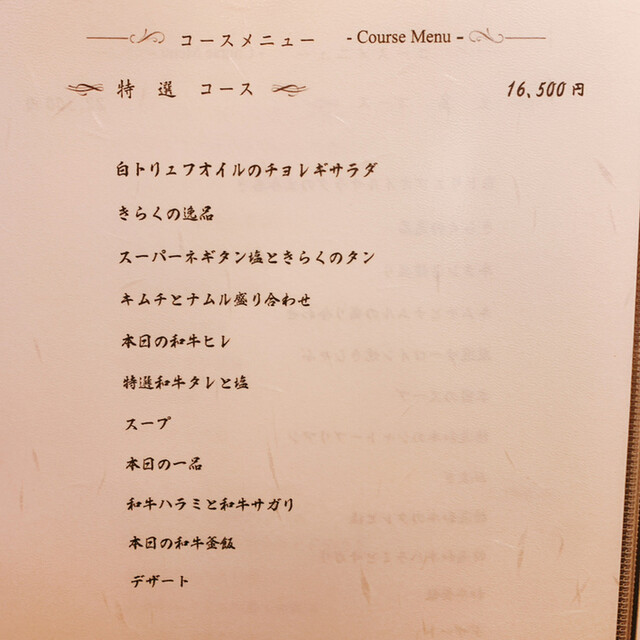 コースメニュー - Course Menu -
特 選 コース 16,500円
白トリュフオイルのチョレギサラダ
きらくの逸品
スーパーネギタン塩ときらくのタン
キムチとナムル盛り合わせ
本日の和牛ヒレ
特選和牛タレと塩
スープ
本日の一品
和牛ハラミと和牛サガリ
本日の和牛釜飯
デザート